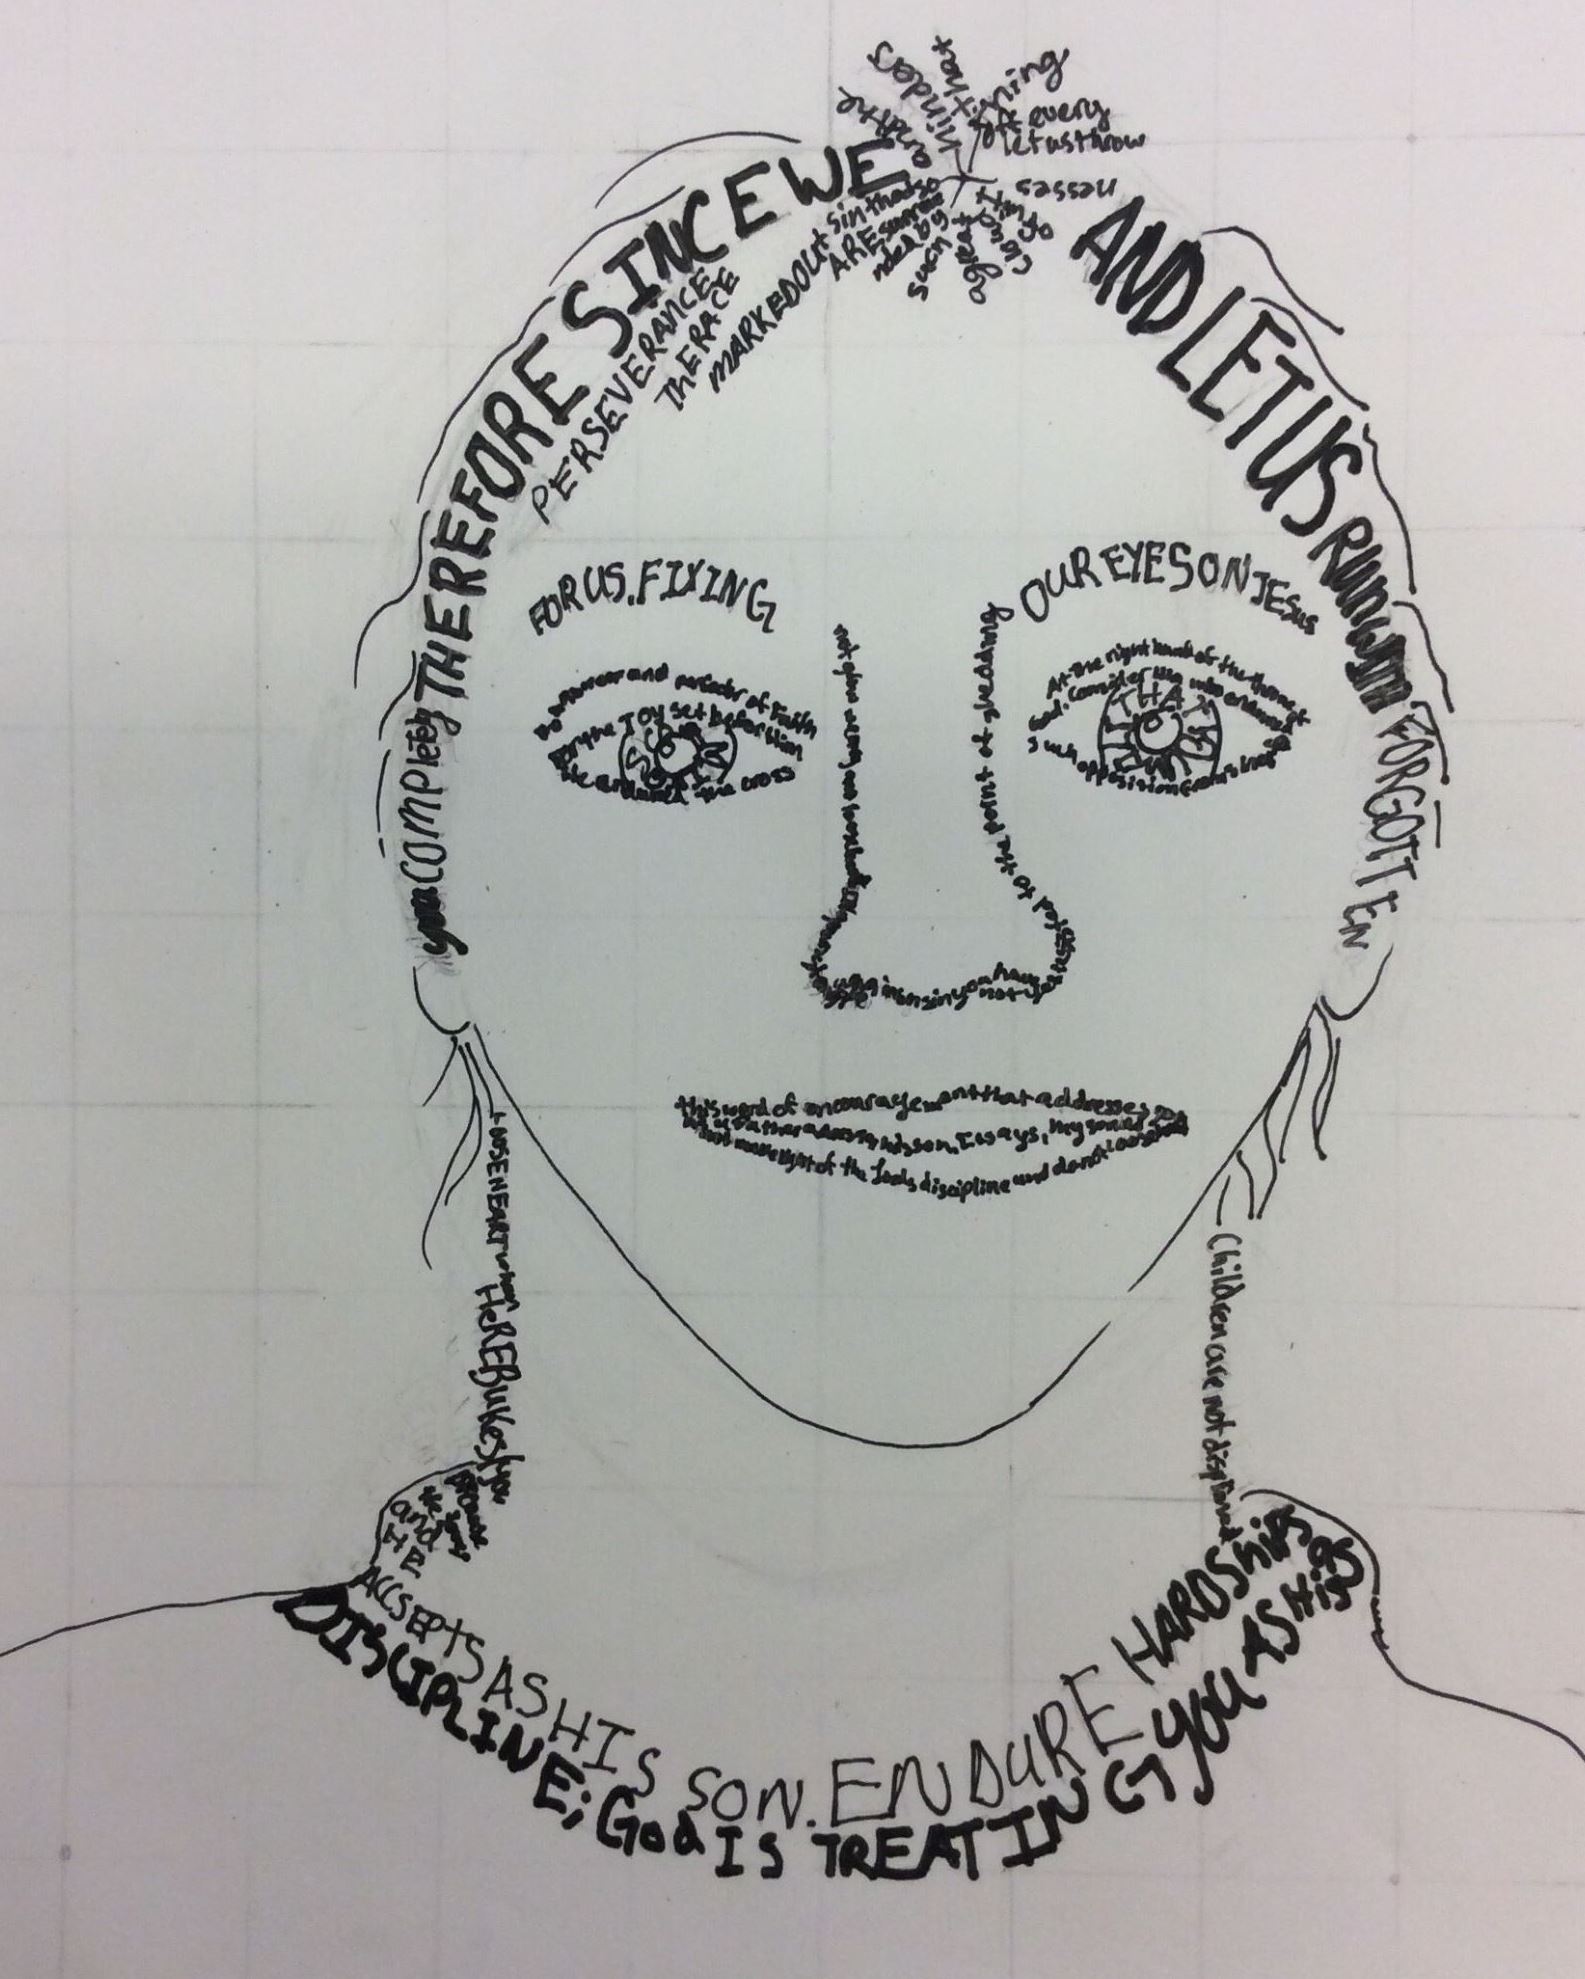 THEREFORE SINCE WE
ARE surrou
nded by
such
a great
cloud
of wit
nesses
let us throw
off every
thing
that
hinders
and the
sin that so
AND LET US RUN WITH
PERSEVERANCE
THE RACE
MARKED OUT
FOR US. FIXING
OUR EYES ON JESUS
and perfecter of Faith
For the Joy set before Him
He endured the cross
At the right hand of the throne of
God. Consider Him who endured
such opposition from sinners
THAT
not grow weary and
against sin you have
not yet
resisted to the point of shedding
you COMPLETELY
FORGOTTEN
this word of encouragement that addresses you
as a father addresses his son. It says, My son
not make light of the Lords discipline and do not loose heart
LOSE HEART when
He REBUKES you
and
HE
ACCSEPTS AS HIS SON. ENDURE HARDSHIP as
DISCIPLINE; God IS TREATING YOU AS HIS
Children are not disciplined